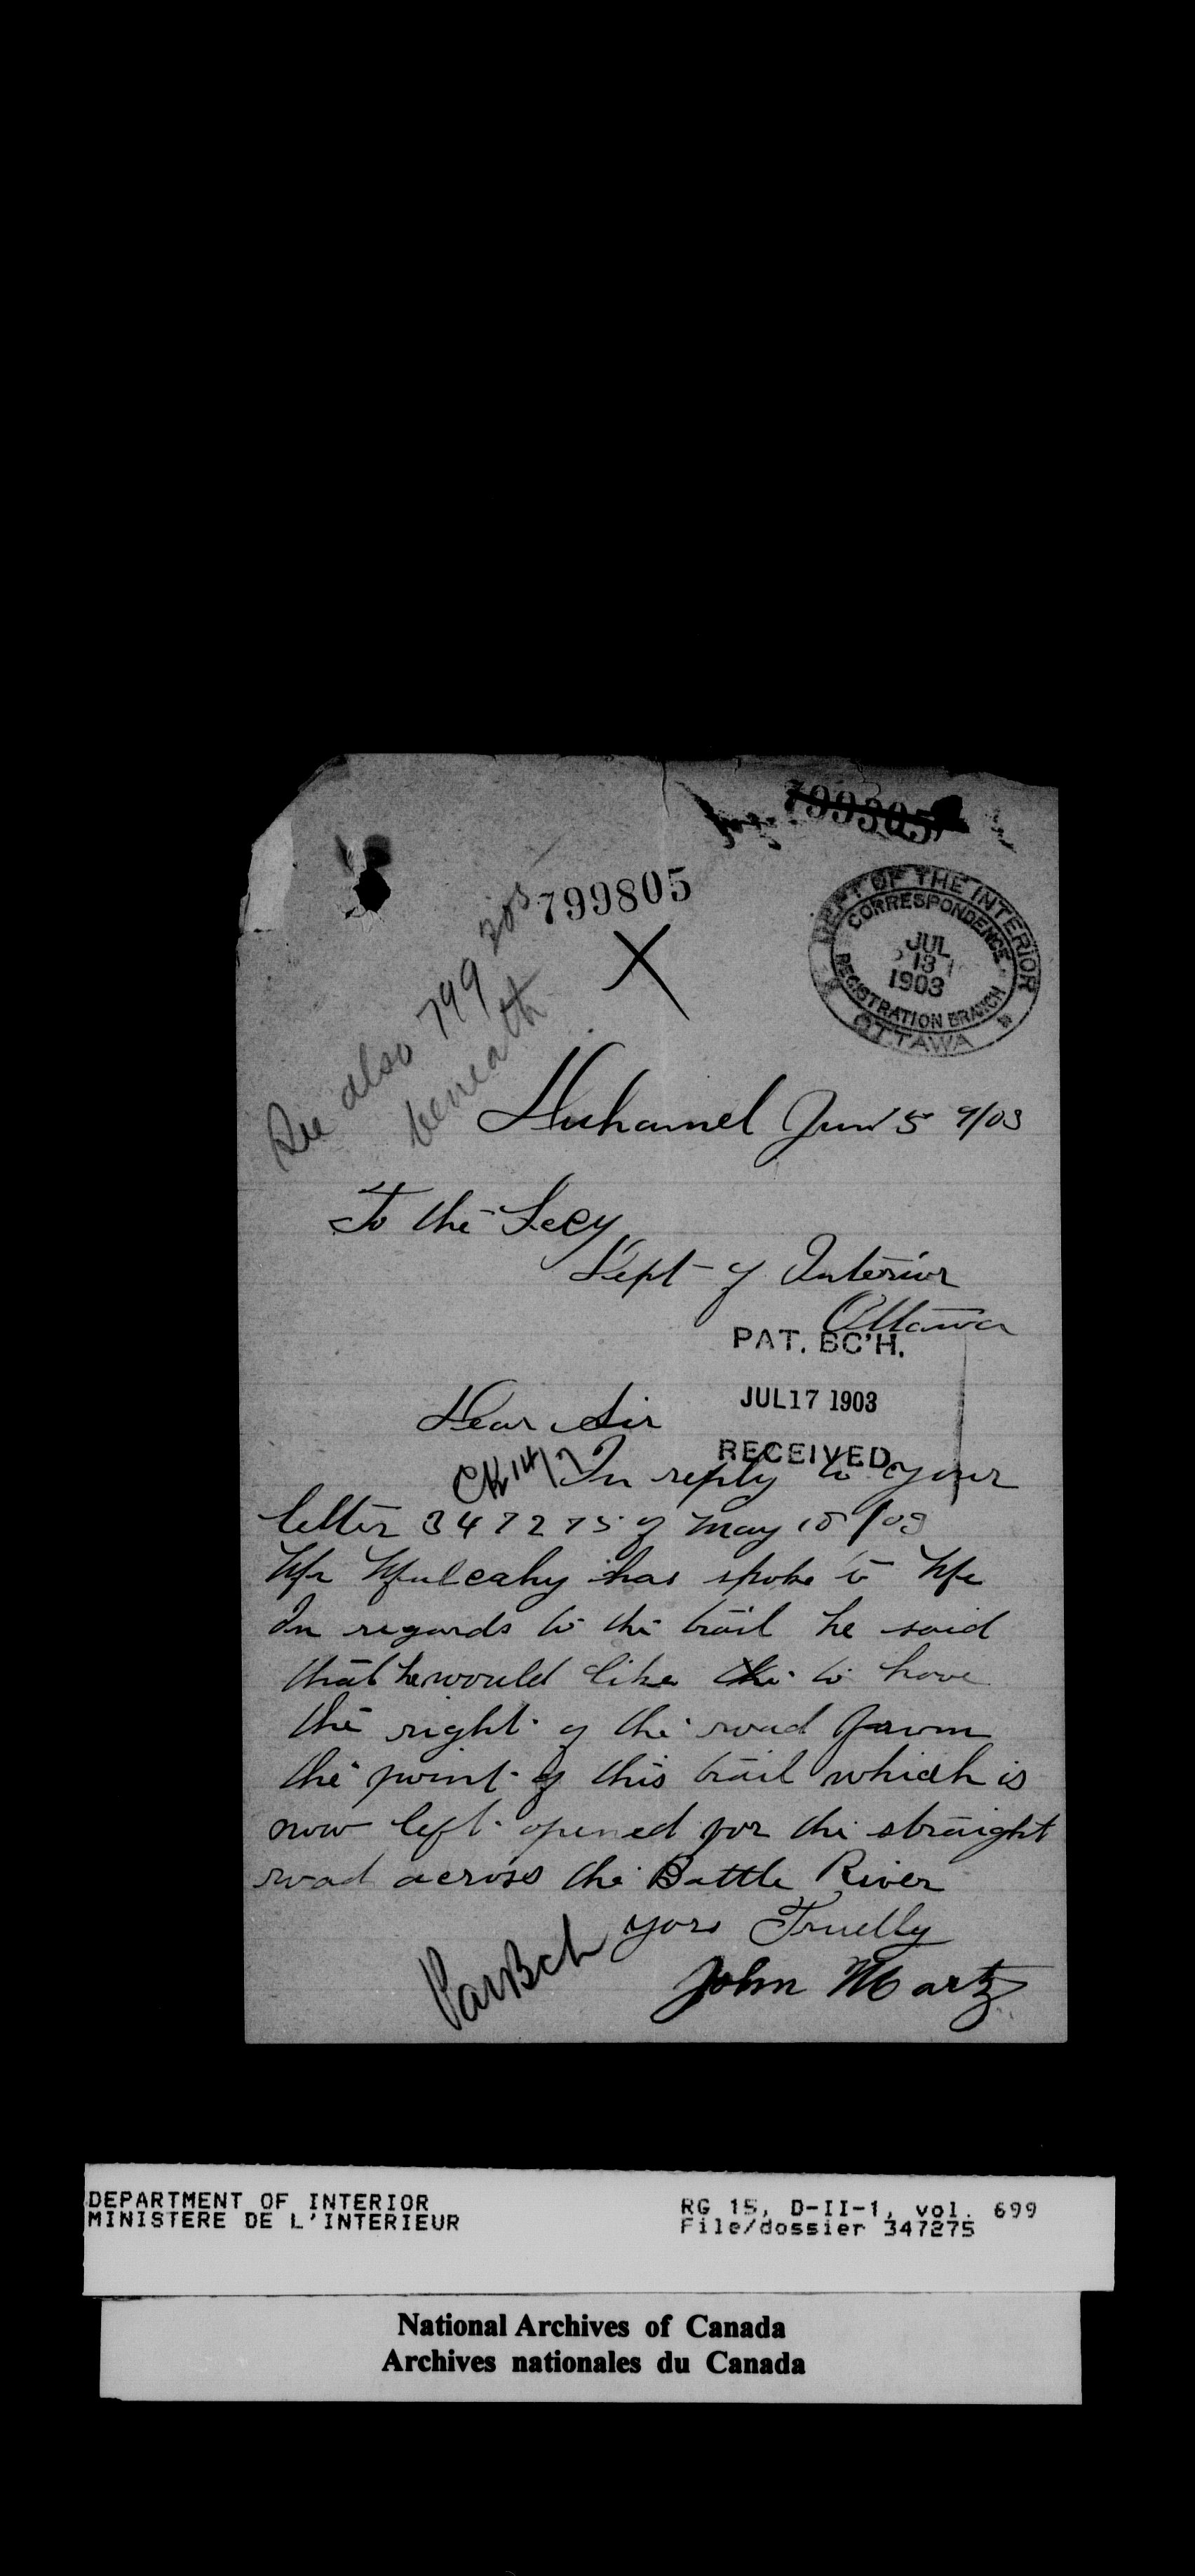 799305
799805
X
DEPT OF THE INTERIOR
CORRESPONDENCE
JUL
13
1903
REGISTRATION BRANCH
OTTAWA
See also 799305
beneath
Duhamel Jun 5 9/03
To the Secy
Dept of Interior
Ottawa
PAT. BC'H.
JUL 17 1903
RECEIVED
Dear Sir
CK 14/7
In reply to your
letter 347275 of May 18/03
Mr Mulcahy has spoke to Me
In regards to the trail he said
that he would like the to have
the right of the road from
the point of this trail which is
now left opened for the straight
road across the Battle River
yors Truelly
John Martz
Pat Bch
DEPARTMENT OF INTERIOR
MINISTERE DE L'INTERIEUR
RG 15, D-II-1, vol. 699
File/dossier 347275
National Archives of Canada
Archives nationales du Canada